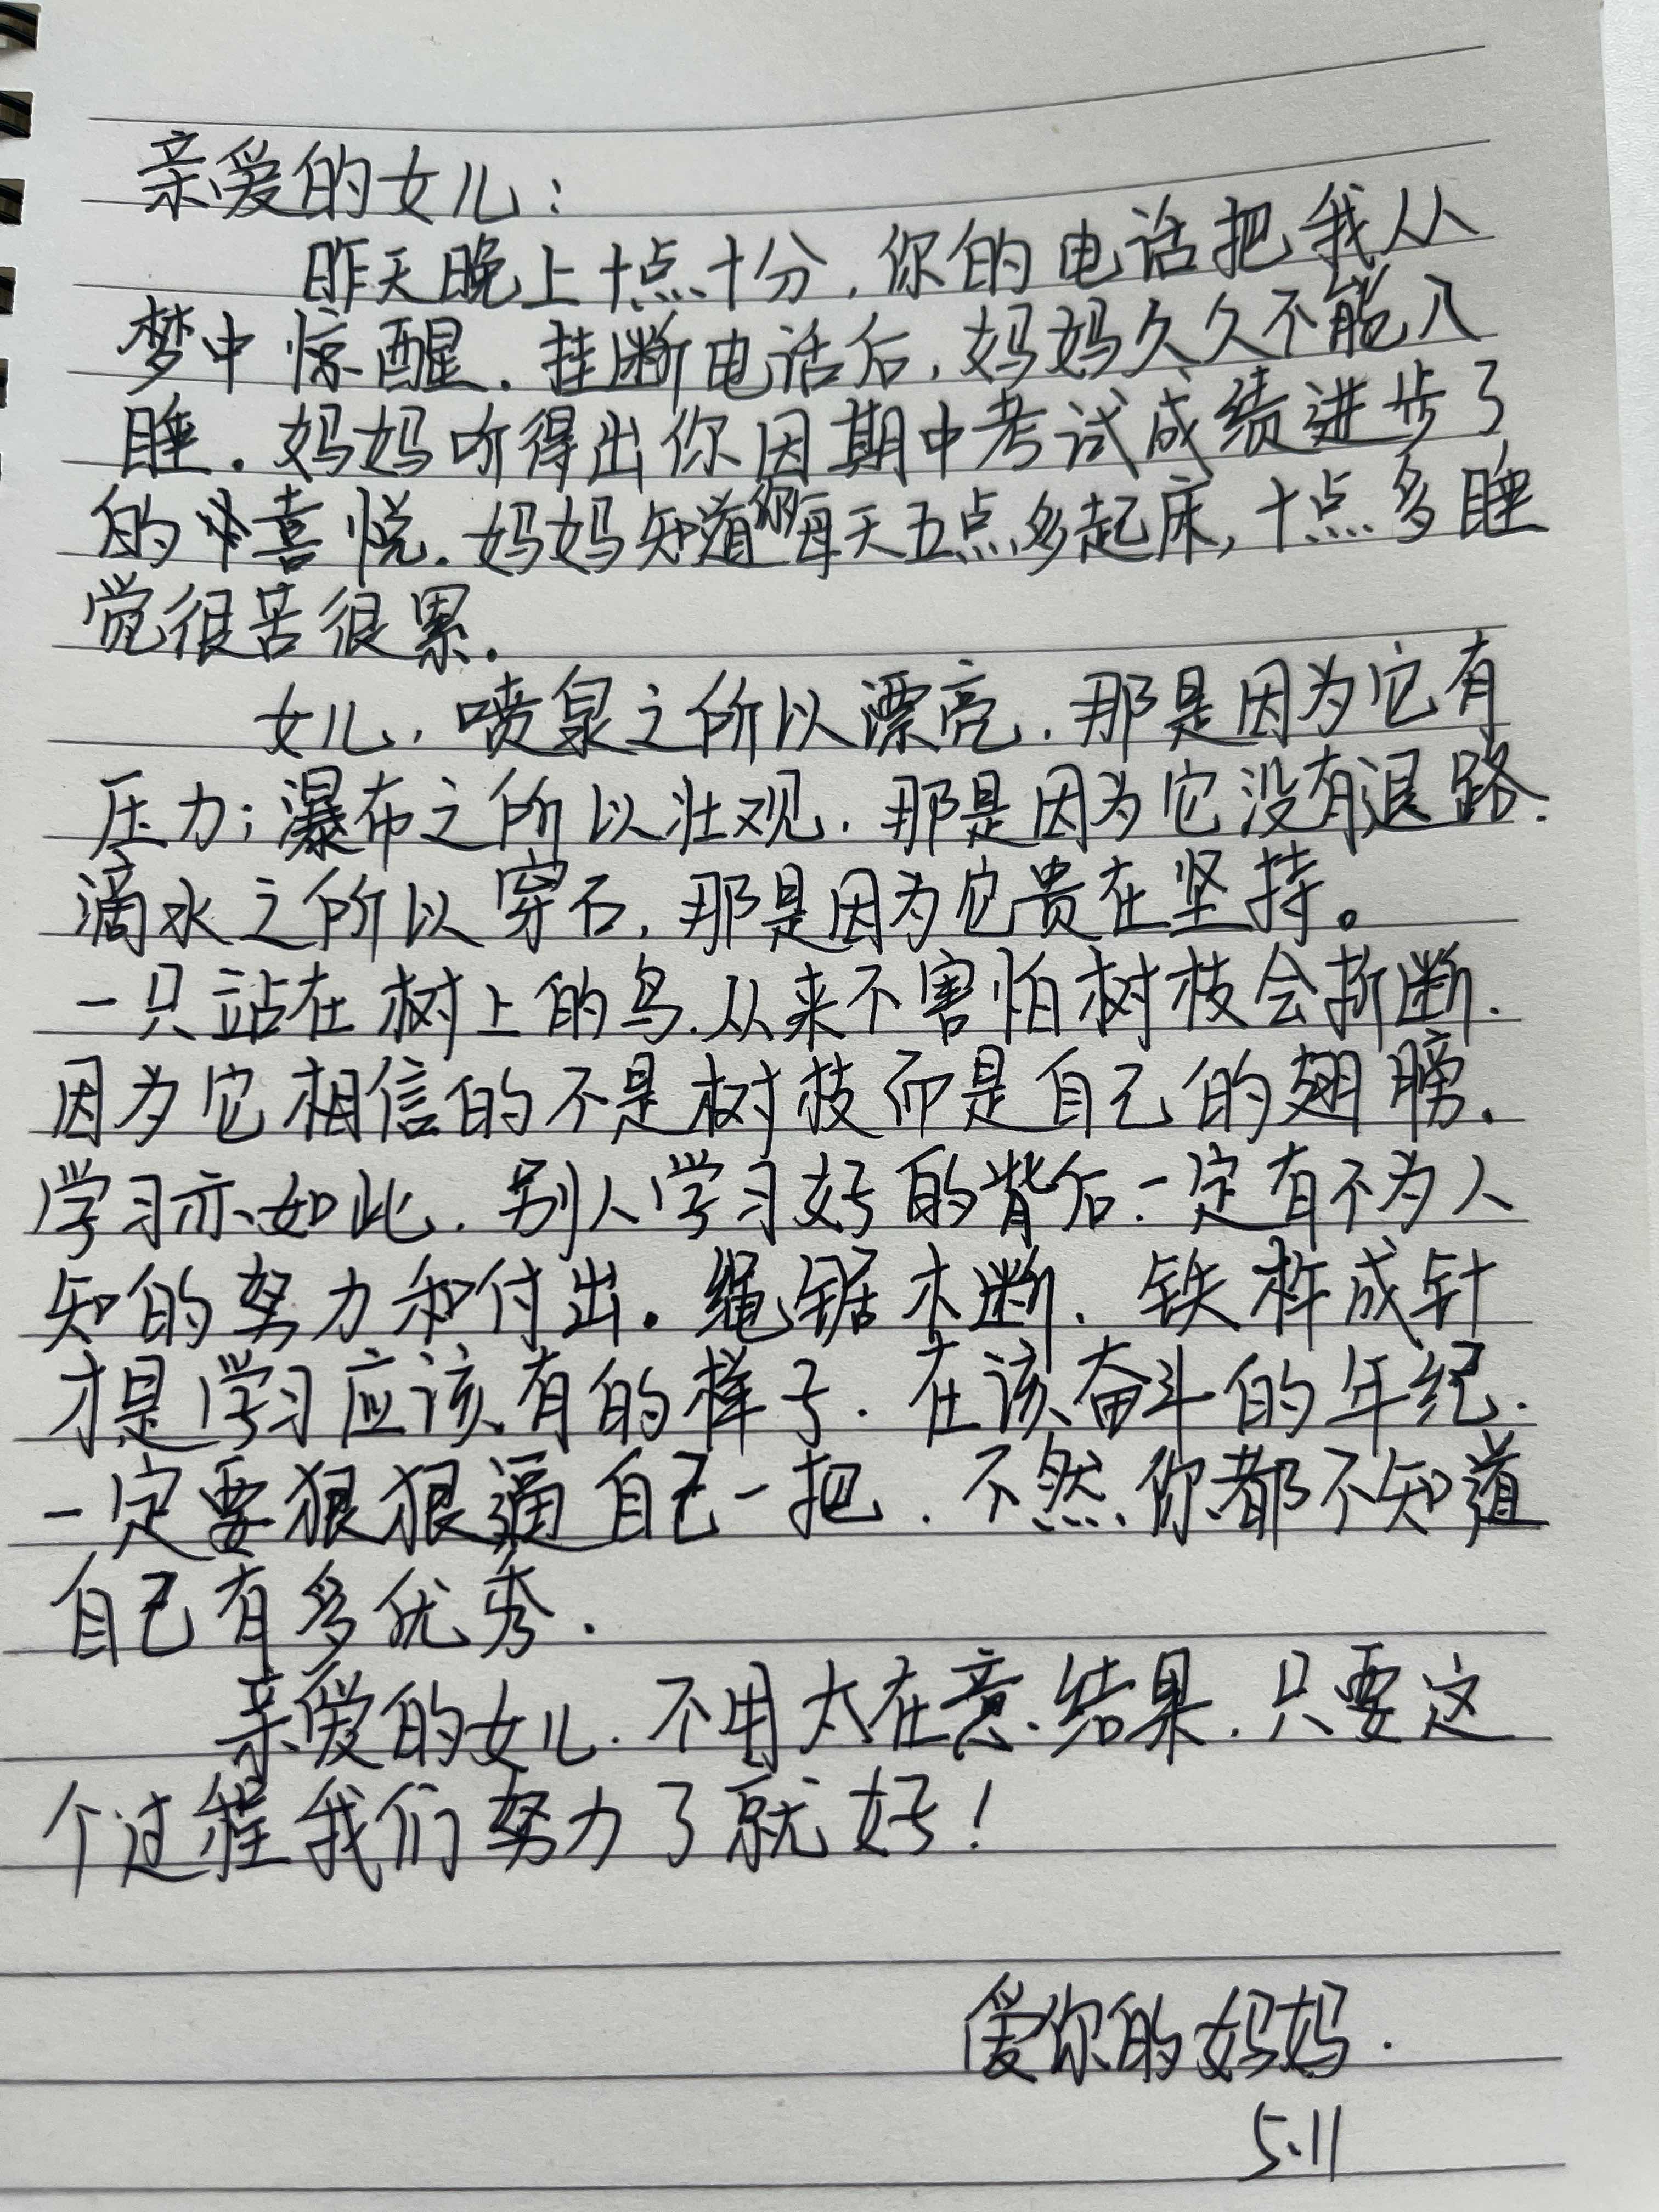 亲爱的女儿：
昨天晚上十点十分，你的电话把我从
梦中惊醒．挂断电话后，妈妈久久不能入
睡．妈妈听得出你因期中考试成绩进步了
的喜悦．妈妈知道你每天五点多起床，十点多睡
觉很苦很累．
女儿，喷泉之所以漂亮．那是因为它有
压力；瀑布之所以壮观．那是因为它没有退路．
滴水之所以穿石，那是因为它贵在坚持。
一只站在树上的鸟．从来不害怕树枝会折断．
因为它相信的不是树枝而是自己的翅膀．
学习亦如此．别人学习好的背后．一定有不为人
知的努力和付出．绳锯木断．铁杵成针
才是学习应该有的样子．在该奋斗的年纪．
一定要狠狠逼自己一把．不然你都不知道
自己有多优秀．
亲爱的女儿．不用太在意结果．只要这
个过程我们努力了就好！
爱你的妈妈．
5.11